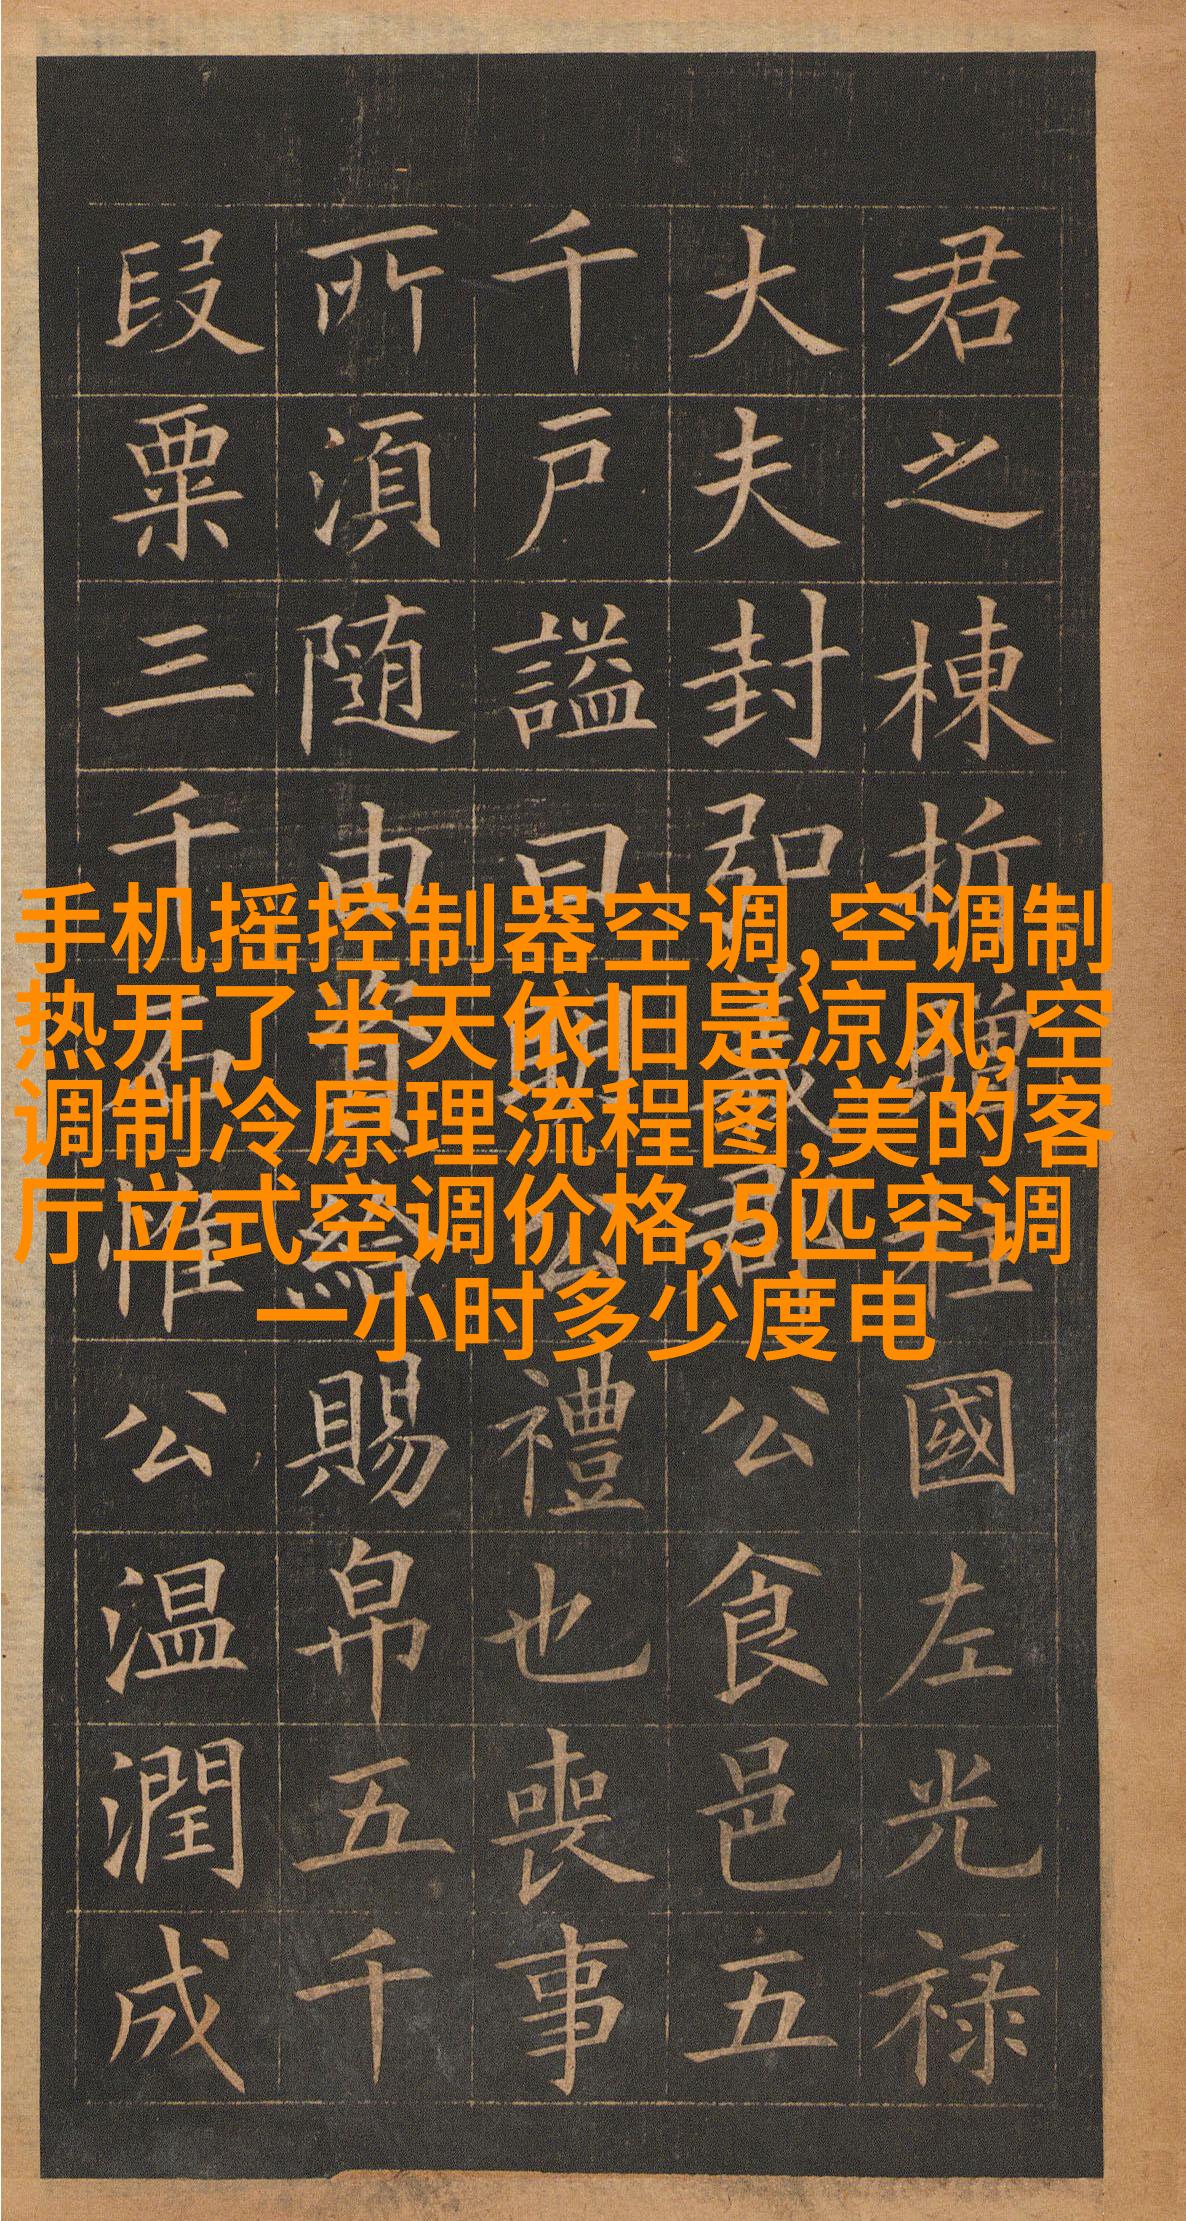 手机摇控制器空调,空调制
热开了半天依旧是凉风,空
调制冷原理流程图,美的客
厅立式空调价格,5匹空调
一小时多少度电
君之棟折贈柱國左光禄
大夫封弘義郡公食邑五
千戸謚曰明公禮也喪事
所湏随由資給賜帛五千
段粟三千石惟公温潤成